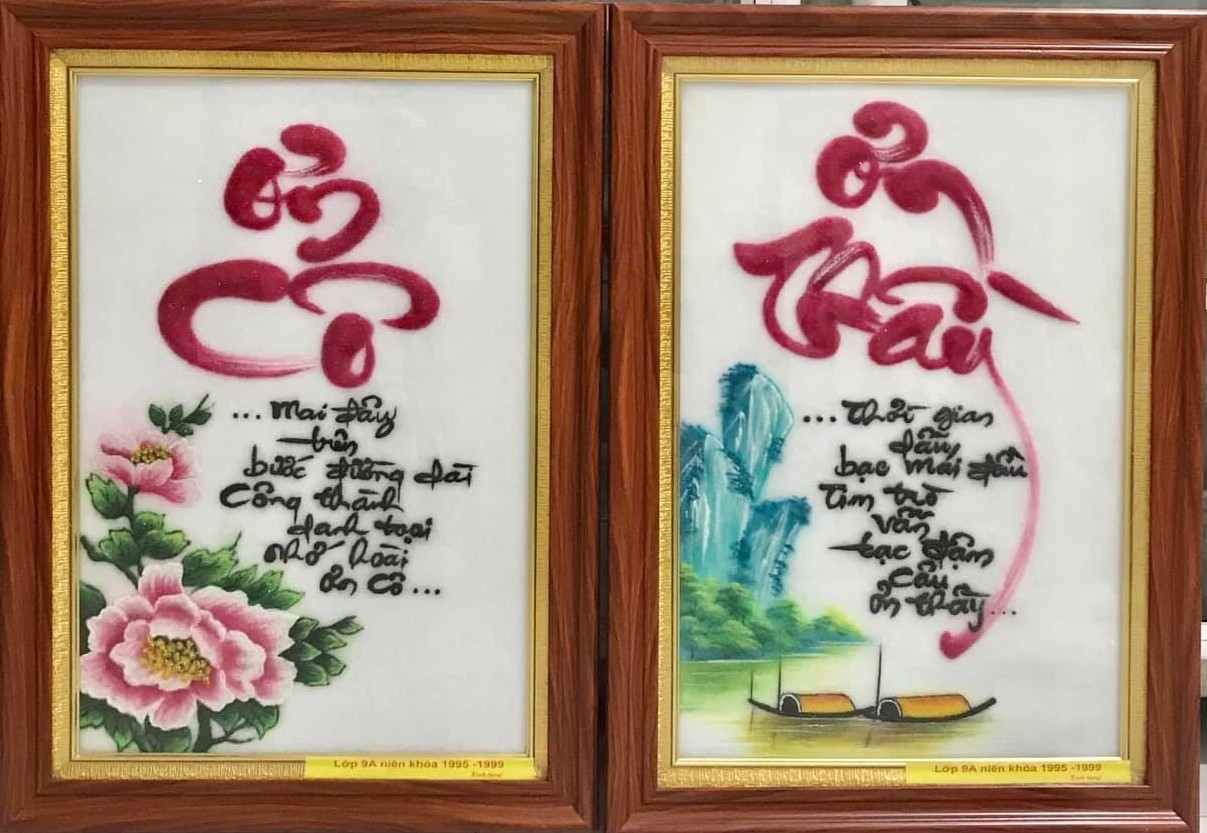 Ơn
Cô
... Mai đây
trên
bước đường dài
Công thành
danh toại
nhớ hoài
ơn Cô ...
Lớp 9A niên khóa 1995 -1999
Kính tặng!
Ơn
Thầy
... Thời gian
dẫu
bạc mái đầu
Tim trò
vẫn
tạc đậm
câu
ơn thầy ...
Lớp 9A niên khóa 1995 -1999
Kính tặng!